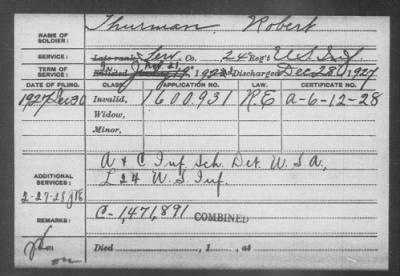 NAME OF SOLDIER: Thurman, Robert
SERVICE: Late rank, Serv. Co. 24 Reg't U.S. Inf
TERM OF SERVICE: Enlisted 192 Discharged Dec 28, 1927
DATE OF FILING. CLASS. APPLICATION NO. LAW. CERTIFICATE NO.
1927 Dec 30 Invalid, 1600931 R.E a-6-12-28
Widow,
Minor,
ADDITIONAL SERVICES: A & C Inf. Sch. Det. U.S.A,
L 24 U.S. Inf.
2-27-28
REMARKS: C-1,471,891 COMBINED
Died , 1 , at